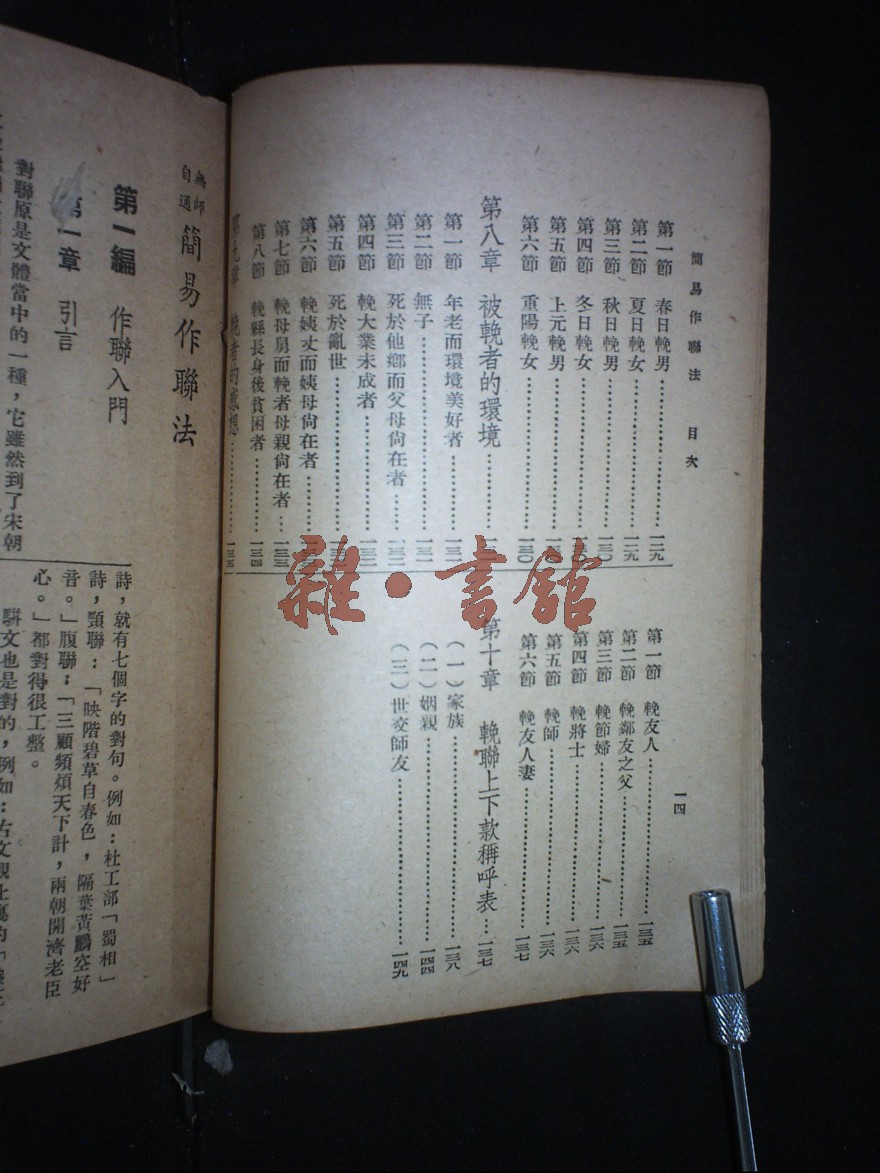 簡易作聯法 目次 一四
第一節 春日輓男…………一二九
第二節 夏日輓女…………一二九
第三節 秋日輓男…………一三〇
第四節 冬日輓女…………
第五節 上元輓男…………
第六節 重陽輓女…………一三〇
第八章 被輓者的環境…………
第一節 年老而環境美好者…………一三一
第二節 無子…………一三一
第三節 死於他鄉而父母尙在者…………一三二
第四節 輓大業未成者…………一三二
第五節 死於亂世…………
第六節 輓姨丈而姨母尙在者…………
第七節 輓母舅而輓者母親尙在者…一三三
第八節 輓縣長身後貧困者…………一三四
第九章 輓者的感想…………一三五
第一節 輓友人…………一三五
第二節 輓鄰友之父…………一三五
第三節 輓節婦…………一三六
第四節 輓將士…………一三六
第五節 輓師…………一三六
第六節 輓友人妻…………一三七
第十章 輓聯上下款稱呼表…一三七
(一)家族…………一三八
(二)姻親…………一四四
(三)世交師友…………一四九
雜·書館
無師自通 簡易作聯法
第一編 作聯入門
第一章 引言
對聯原是文體當中的一種，它雖然到了宋朝
詩，就有七個字的對句。例如：杜工部「蜀相」
詩，頸聯：「映階碧草自春色，隔葉黃鸝空好
音。」腹聯：「三顧頻煩天下計，兩朝開濟老臣
心。」都對得很工整。
駢文也是對的，例如：古文觀止裏的「